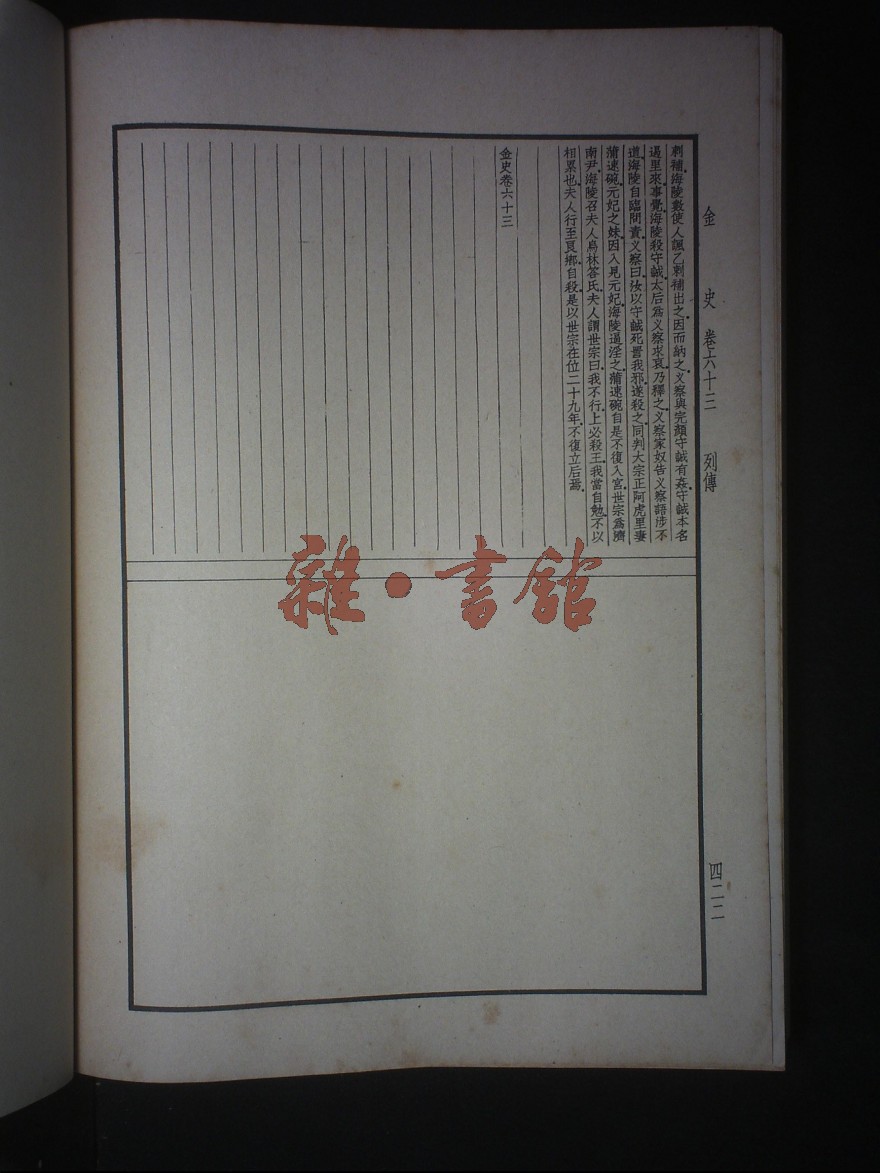 金史 卷六十三 列傳
刺補海陵數使人諷乙刺補出之因而納之义察與完顏守誠有姦守誠本名
遏里來事覺海陵殺守誠太后為义察求哀乃釋之义察家奴告义察語涉不
道海陵自臨問責义察曰汝以守誠死詈我邪遂殺之同判大宗正阿虎里妻
蒲速碗元妃之妹因入見元妃海陵逼淫之蒲速碗自是不復入宮世宗為濟
南尹海陵召夫人烏林答氏夫人謂世宗曰我不行上必殺王我當自勉不以
相累也夫人行至良鄉自殺是以世宗在位二十九年不復立后焉
金史卷六十三
四二二
雜·書館